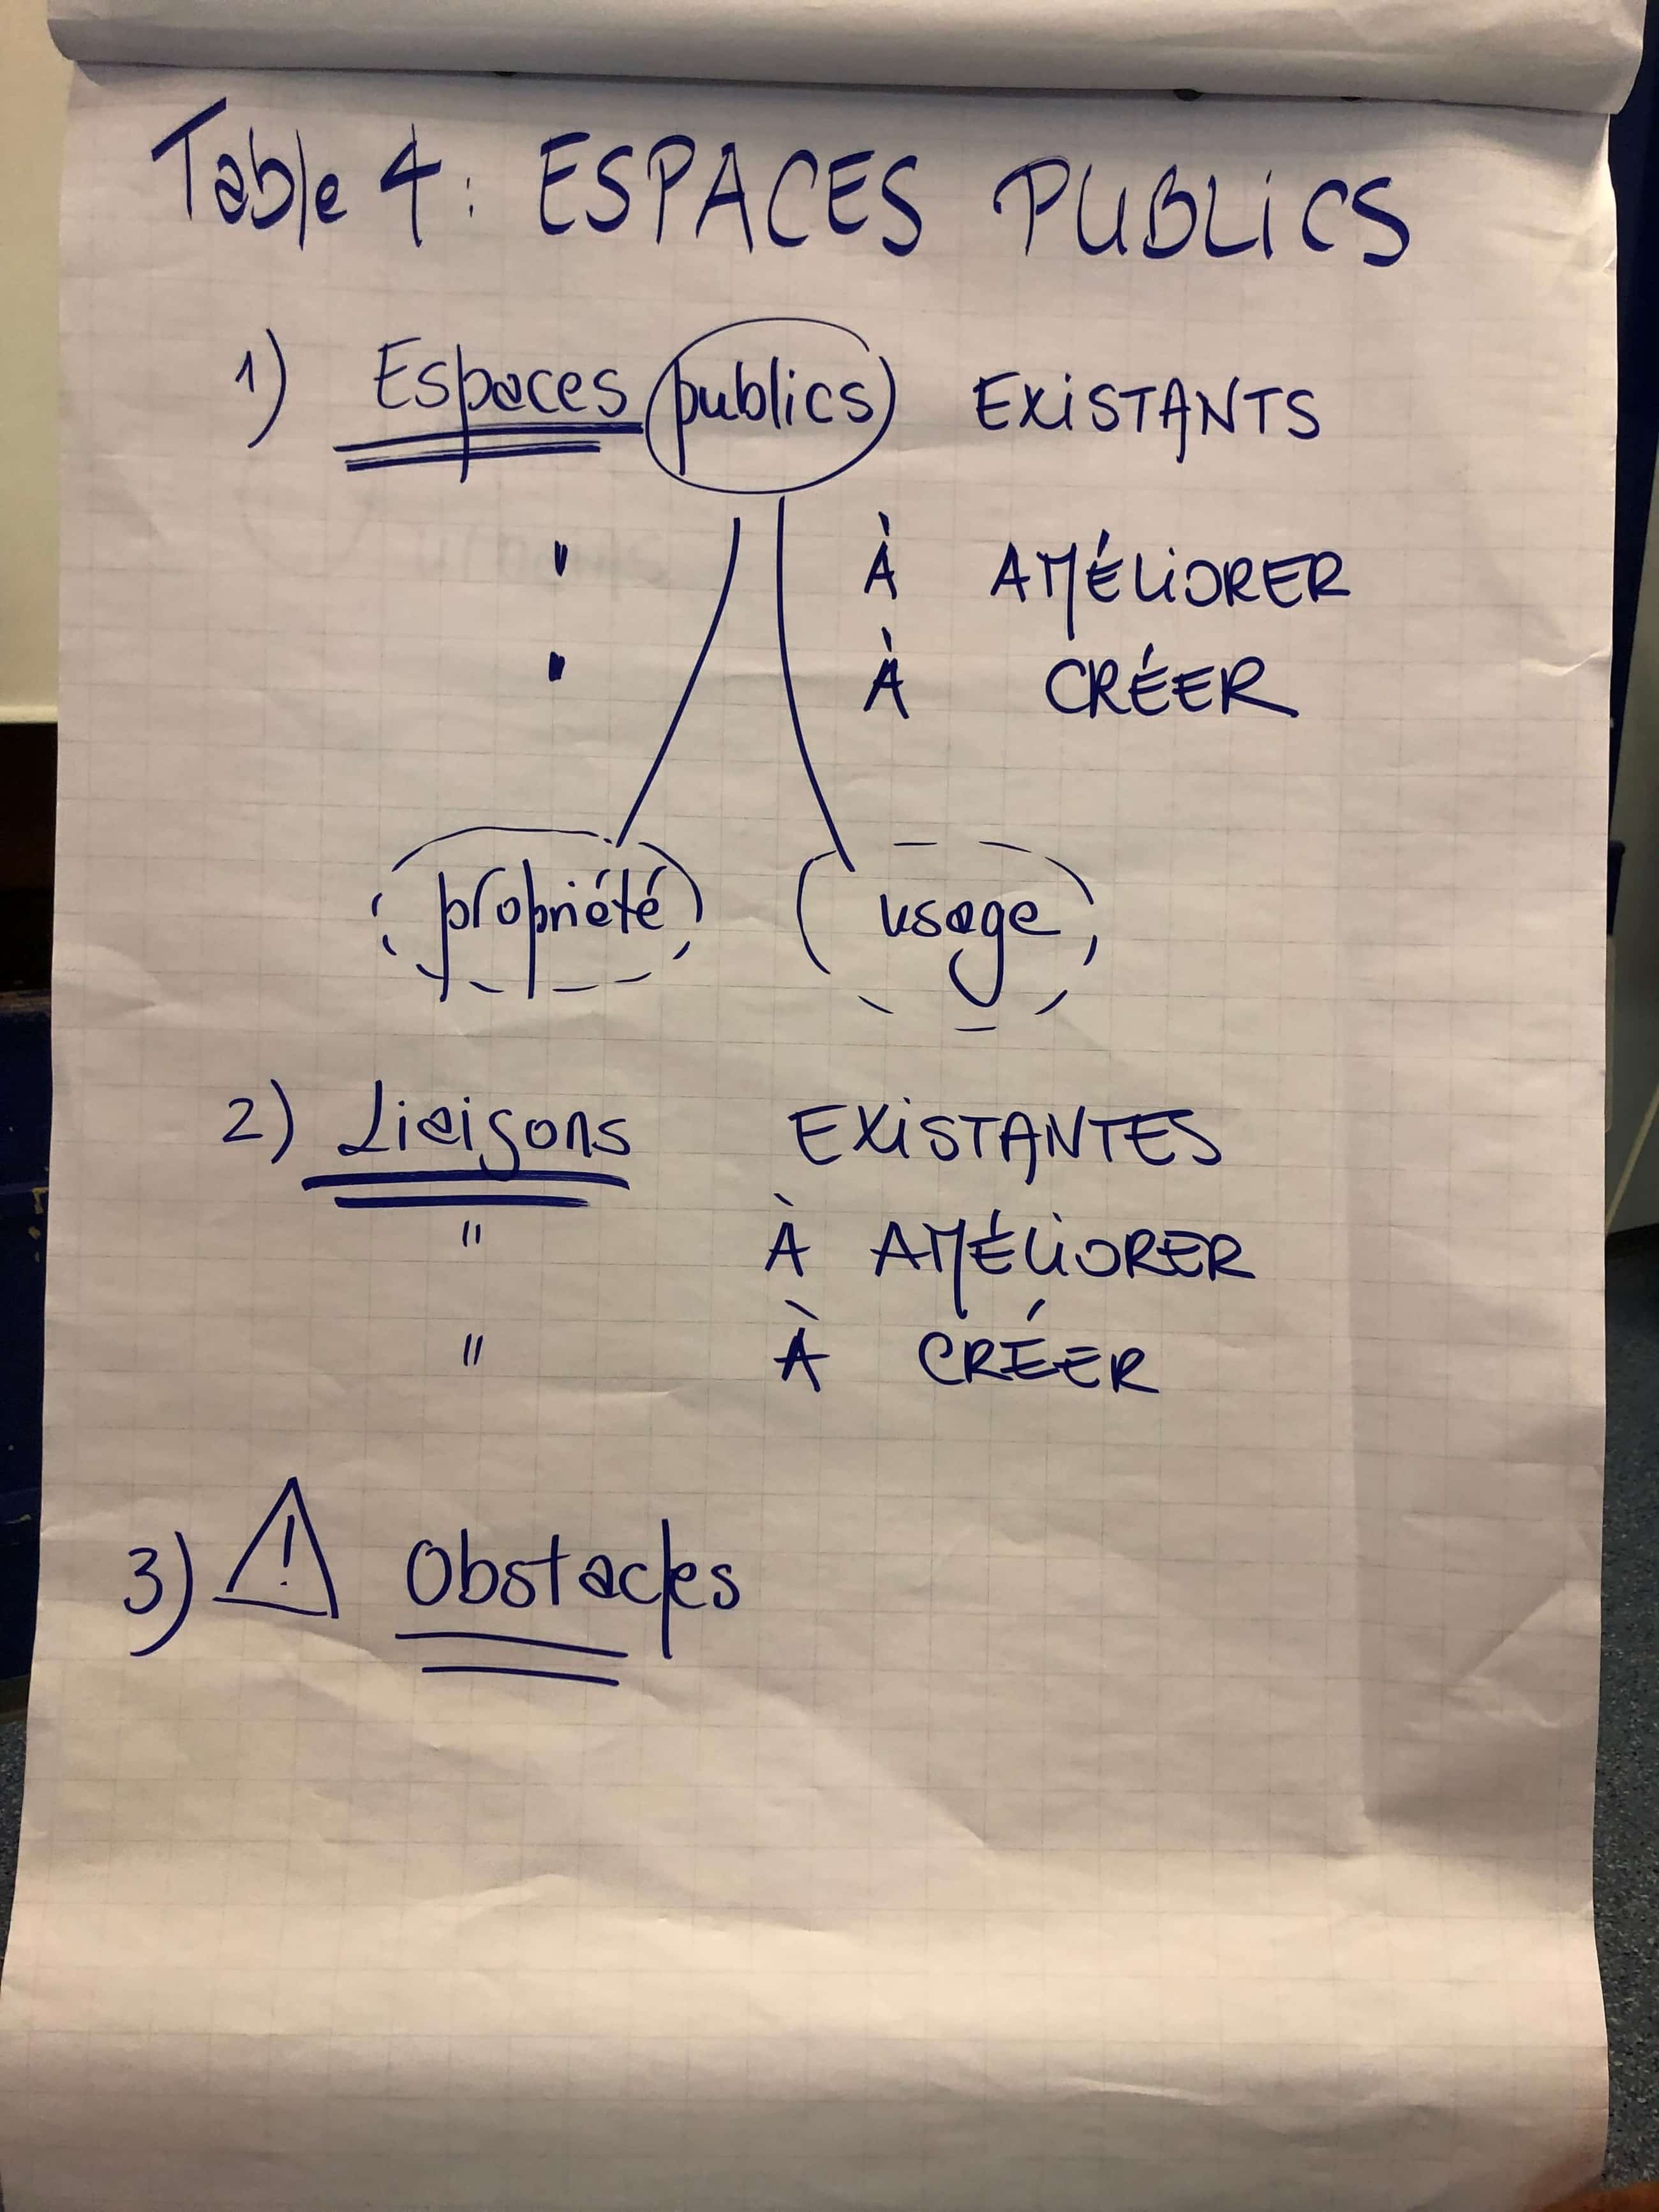 Table 4 : ESPACES PUBLiCS
1) Espaces publics EXiSTANTS
" À AMÉLiORER
" À CRÉER
propriété usage
2) Liaisons EXiSTANTES
" À AMÉLiORER
" À CRÉER
3) ! Obstacles